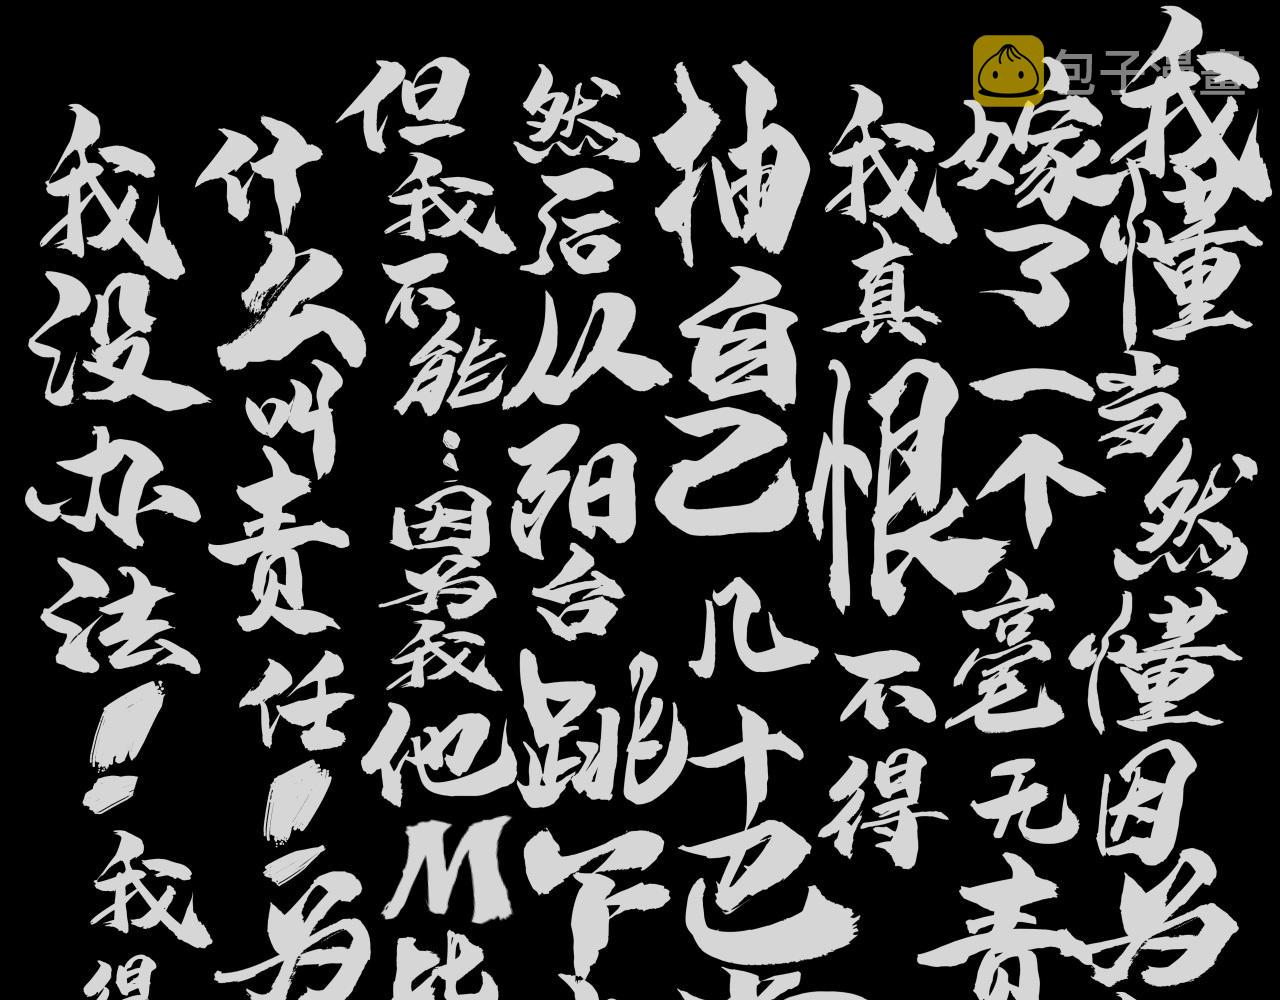 包子漫畫
我懂当然懂因为
嫁了一个毫无责
我真恨不得
抽自己几十巴
然后从阳台跳下
但我不能：因为我他M比
什么叫责任！为
我没办法！我得